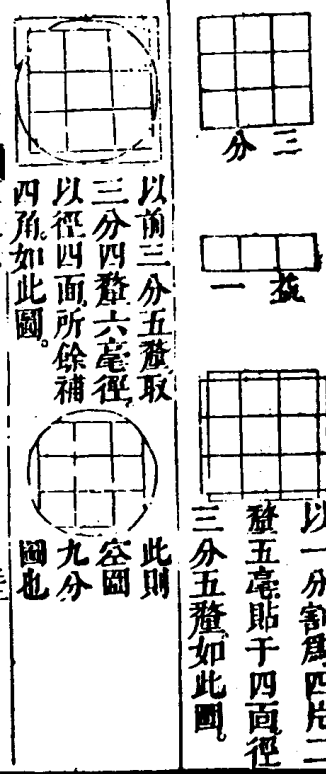 三分
益一
以一分割爲四片二
釐五毫貼于四面徑
三分五釐如此圖
以前三分五釐取
三分四釐六毫徑
以徑四面所餘補
四角如此圖。
此則
容圓
九分
圖也